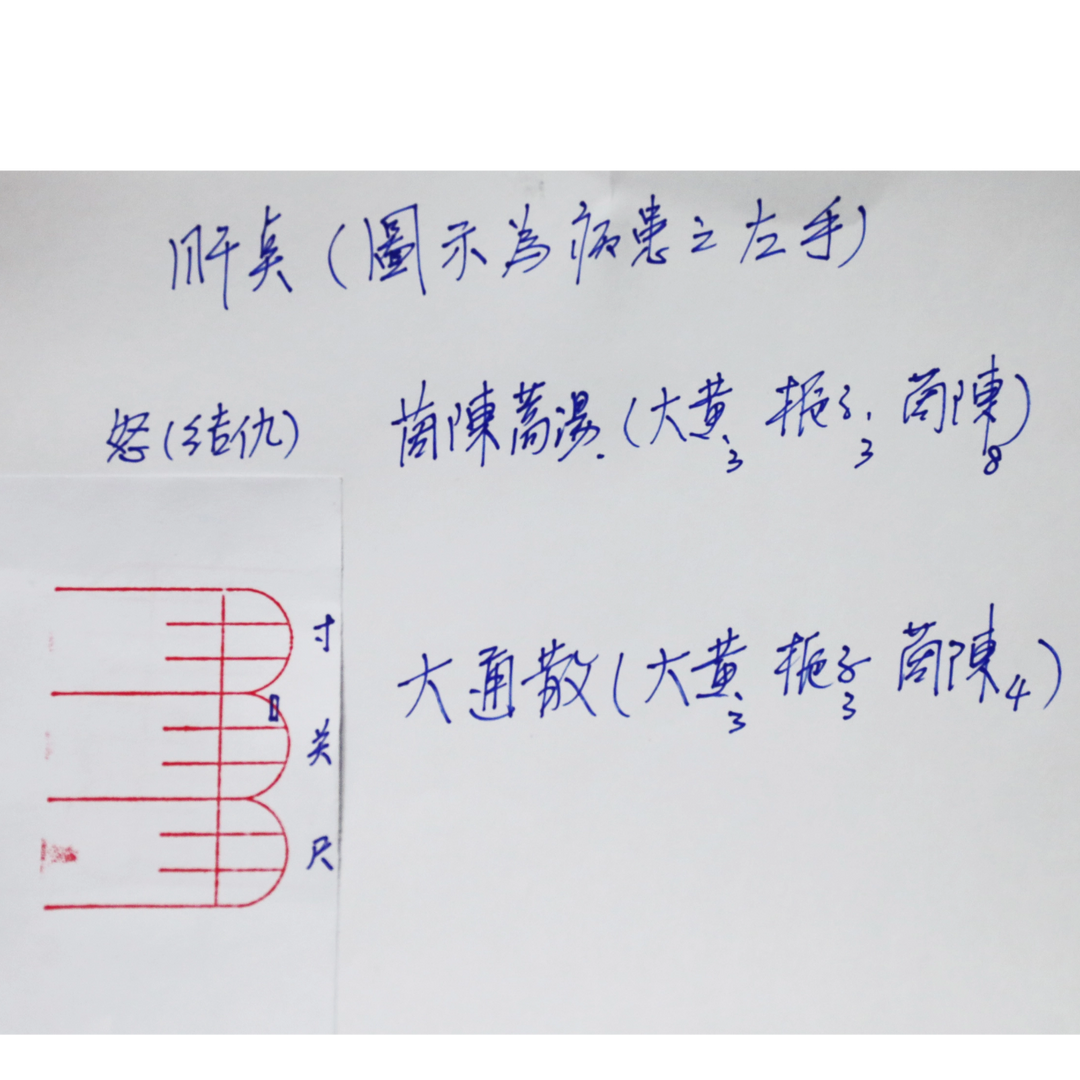 肝炎(圖示為病患之左手)
怒(结仇) 茵陳蒿湯.(大黃3 梔子3 茵陳8)
寸
关
尺
大通散(大黃3 梔子3 茵陳4)